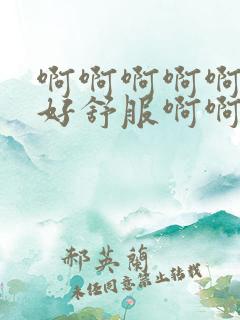 啊啊啊啊啊
好舒服啊啊
郝英蘭
未经同意禁止转载